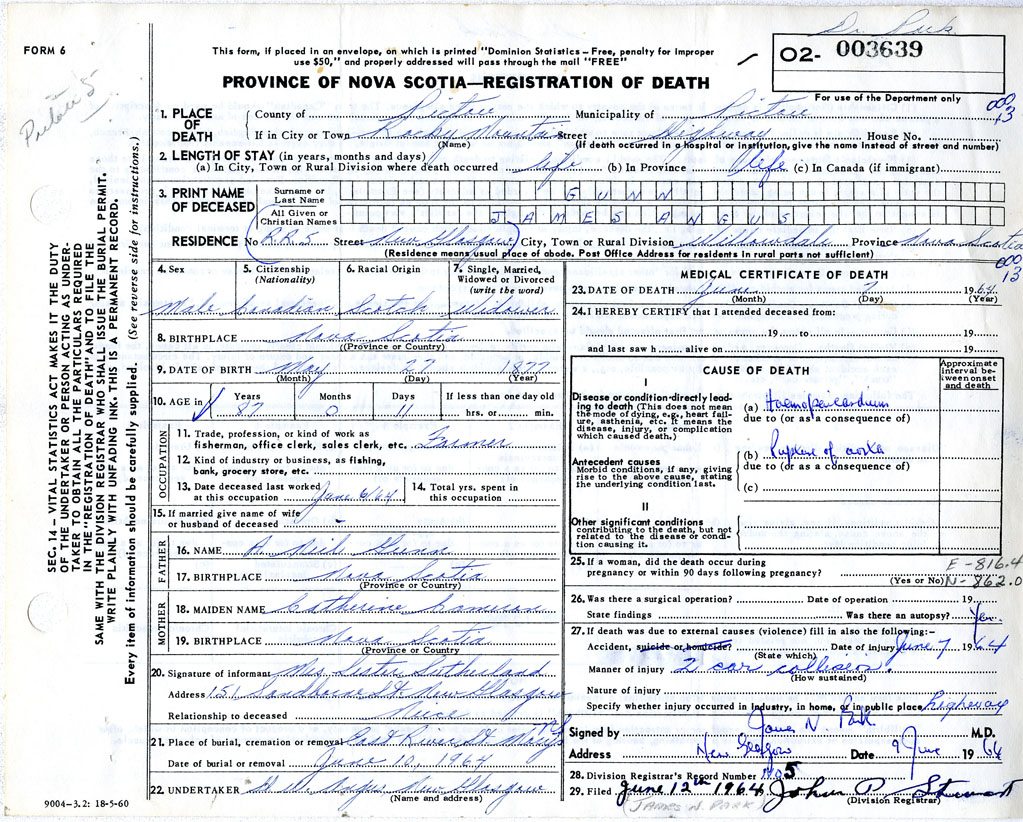 Dr. Park
FORM 6
This form, if placed in an envelope, on which is printed "Dominion Statistics – Free, penalty for improper
use $50," and properly addressed will pass through the mail "FREE"
02- 003639
For use of the Department only
PROVINCE OF NOVA SCOTIA—REGISTRATION OF DEATH
Pictou 5
000
13
1. PLACE OF DEATH
County of Pictou Municipality of Pictou
If in City or Town Rocky Mountain Street Highway House No.
(Name) (If death occurred in a hospital or institution, give the name instead of street and number)
2. LENGTH OF STAY (in years, months and days)
(a) In City, Town or Rural Division where death occurred life (b) In Province life (c) In Canada (if immigrant)
3. PRINT NAME OF DECEASED
Surname or Last Name GUNN
All Given or Christian Names JAMES ANGUS
RESIDENCE No R.R.5 Street New Glasgow City, Town or Rural Division Willowdale Province Nova Scotia
(Residence means usual place of abode. Post Office Address for residents in rural parts not sufficient)
000
13
4. Sex
Male
5. Citizenship (Nationality)
Canadian
6. Racial Origin
Scotch
7. Single, Married, Widowed or Divorced (write the word)
Widower
8. BIRTHPLACE Nova Scotia
(Province or Country)
9. DATE OF BIRTH May 27 1877
(Month) (Day) (Year)
10. AGE in Years Months Days If less than one day old
87 0 11 hrs. or min.
OCCUPATION
11. Trade, profession, or kind of work as
fisherman, office clerk, sales clerk, etc. Farmer
12. Kind of industry or business, as fishing,
bank, grocery store, etc.
13. Date deceased last worked
at this occupation June 6/64
14. Total yrs. spent in
this occupation
15. If married give name of wife
or husband of deceased -
FATHER
16. NAME Neil Gunn
17. BIRTHPLACE Nova Scotia
(Province or Country)
MOTHER
18. MAIDEN NAME Catherine Cameron
19. BIRTHPLACE Nova Scotia
(Province or Country
20. Signature of informant Mrs Lester Sutherland
Address 151 St New Glasgow
Relationship to deceased Niece
21. Place of burial, cremation or removal East River St Marys
Date of burial or removal June 10, 1964
22. UNDERTAKER New Glasgow
(Name and address)
9004-3.2: 18-5-60
SEC. 14 – VITAL STATISTICS ACT MAKES IT THE DUTY
OF THE UNDERTAKER OR PERSON ACTING AS UNDER-
TAKER TO OBTAIN ALL THE PARTICULARS REQUIRED
IN THE "REGISTRATION OF DEATH" AND TO FILE THE
SAME WITH THE DIVISION REGISTRAR WHO SHALL ISSUE THE BURIAL PERMIT.
WRITE PLAINLY WITH UNFADING INK. THIS IS A PERMANENT RECORD.
Every item of information should be carefully supplied. (See reverse side for instructions.)
MEDICAL CERTIFICATE OF DEATH
23. DATE OF DEATH June 7 1964
(Month) (Day) (Year)
24. I HEREBY CERTIFY that I attended deceased from:
19 to 19
and last saw h alive on 19
CAUSE OF DEATH
Approximate interval between onset and death
I
Disease or condition directly lead-
ing to death (This does not mean
the mode of dying, e.g., heart failure,
asthenia, etc. It means the
disease, injury, or complication
which caused death.)
(a) Haemopericardium
due to (or as a consequence of)
Antecedent causes
Morbid conditions, if any, giving
rise to the above cause, stating
the underlying condition last.
(b) Rupture of aorta
due to (or as a consequence of)
(c)
II
Other significant conditions
contributing to the death, but not
related to the disease or condi-
tion causing it.
25. If a woman, did the death occur during
pregnancy or within 90 days following pregnancy?
(Yes or No)
E-816.4
N-862.0
26. Was there a surgical operation? Date of operation 19
State findings Was there an autopsy? Yes
27. If death was due to external causes (violence) fill in also the following:–
Accident, suicide or homicide? Date of injury June 7 1964
(State which)
Manner of injury 2 car collision.
(How sustained)
Nature of injury
Specify whether injury occurred in industry, in home, or in public place highway
Signed by James N. Park M.D.
Address New Glasgow Date 9 June 1964
28. Division Registrar's Record Number 5
29. Filed June 12th 1964 John P. Stewart
(JAMES N. PARK) (Division Registrar)